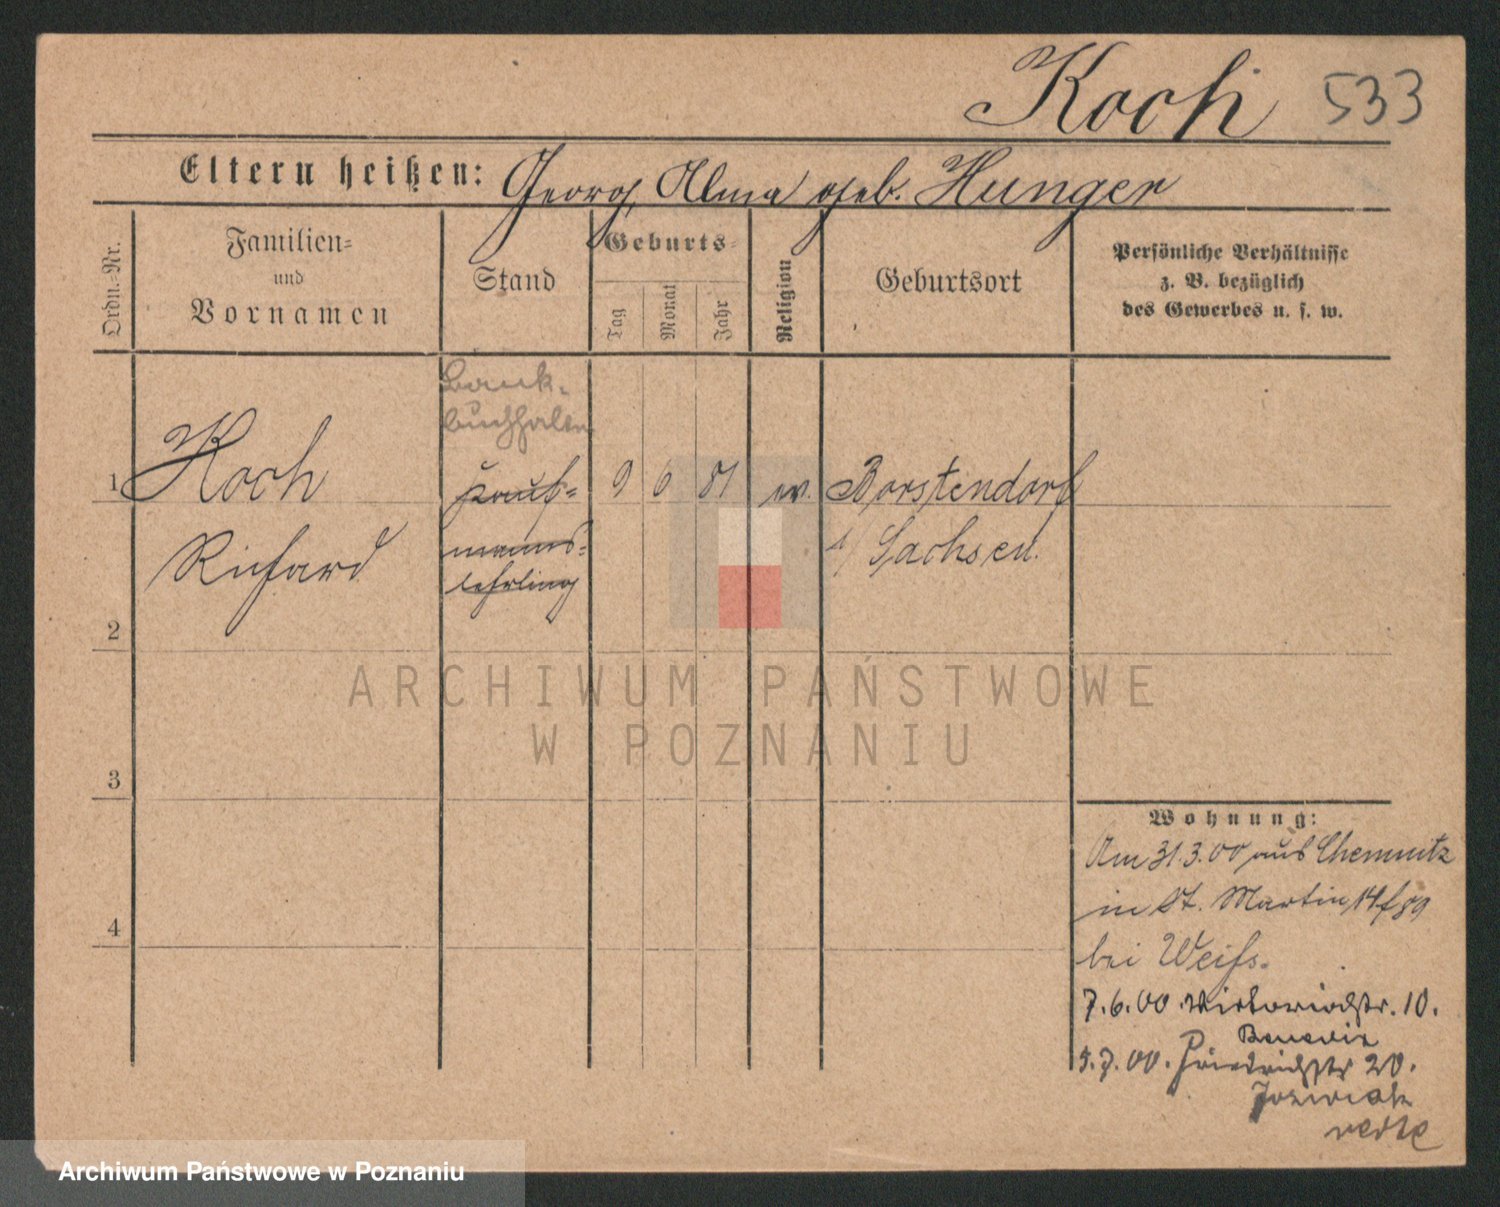 Koch 533
Eltern heißen: Georg, Alma geb. Hunger
Ordn.-Nr.
Familien-
und
Vornamen
Stand
Geburts-
Tag
Monat
Jahr
Religion
Geburtsort
Persönliche Verhältnisse
z. B. bezüglich
des Gewerbes u. s. w.
Bank-
buchhalter
1 Koch Kauf- 9 6 81 ev. Borstendorf
Richard manns- i/ Sachsen.
lehrling
2
3
4
ARCHIWUM PAŃSTWOWE
W POZNANIU
Wohnung:
Am 31.3.00 aus Chemnitz
in St. Martin
bei Weiß.
7.6.00 Viktoriastr. 10.
5.7.00. Friedrichstr 20.
Archiwum Państwowe w Poznaniu